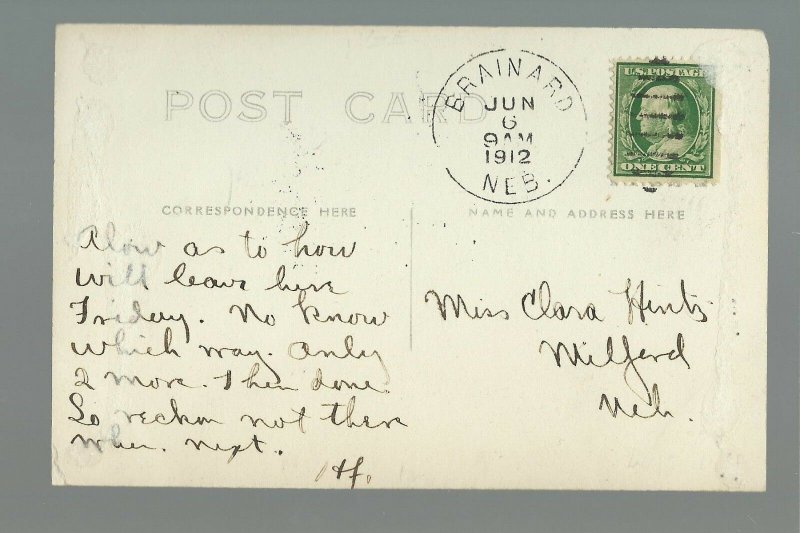 POST CARD
BRAINARD
JUN
6
9AM
1912
NEB.
U.S. POSTAGE
ONE CENT
CORRESPONDENCE HERE
NAME AND ADDRESS HERE
as to how
will leave here
Friday. No know
which way. Only
2 more. Then done.
So reckon not there
when. Next.
Miss Clara Hintz
Milford
Neb.